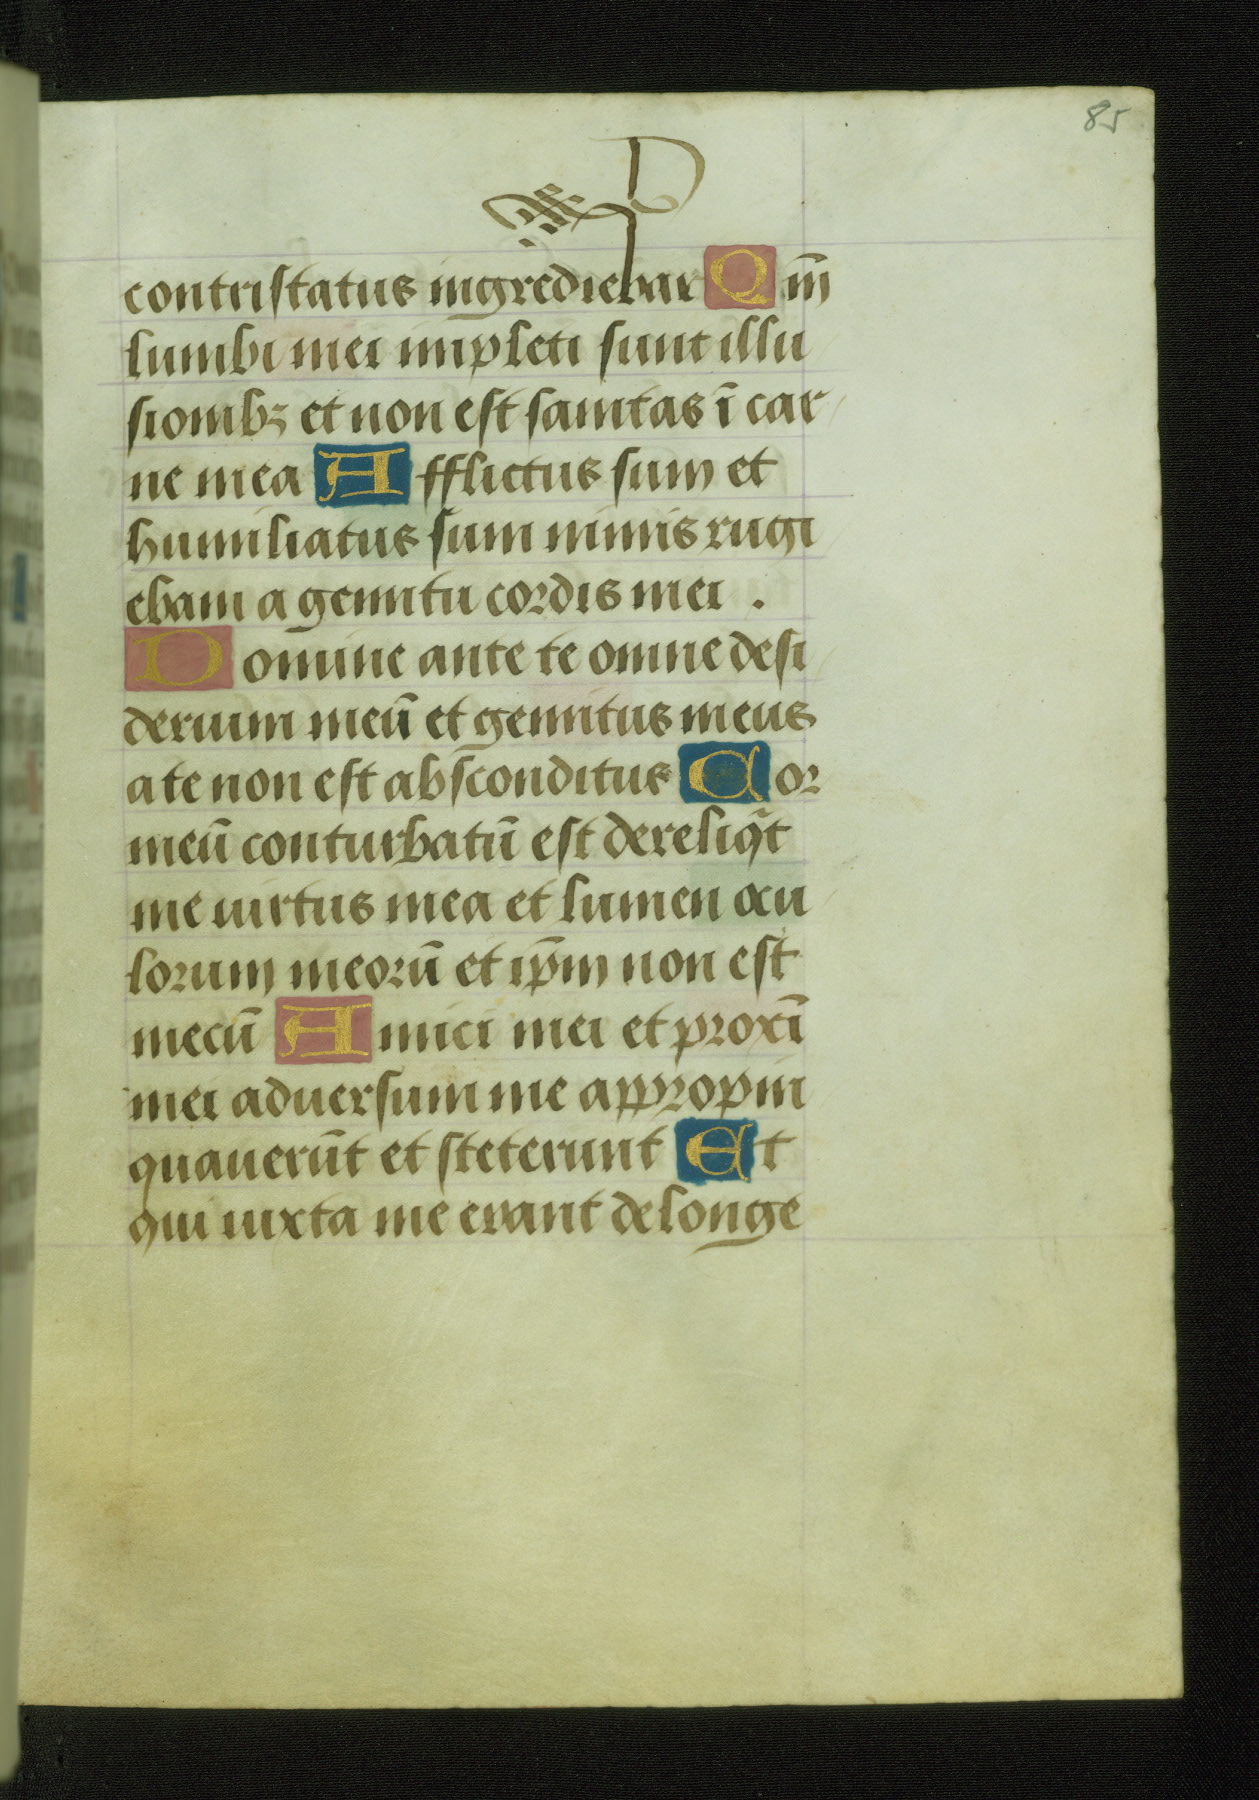 85
contristatus ingrediebar Qm̄
lumbi mei impleti sunt illu
sionibꝫ et non est sanitas ī car
ne mea Afflictus sum et
humiliatus sum nimis rugi
ebam a gemitu cordis mei .
Domine ante te omne desi
derium meū et gemitus meus
a te non est absconditus Cor
meū conturbatū est dereliq̄t
me uirtus mea et lumen ocu
lorum meorū et ip̄m non est
mecū Amici mei et proxī
mei aduersum me appropin
quauerūt et steterunt Et
qui iuxta me erant de longe